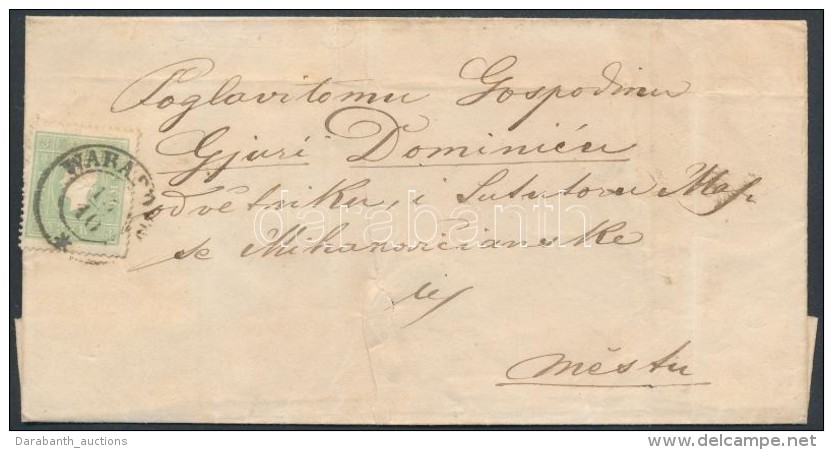 Poglavitomu Gospodinu
Gjuri Dominiću
odvětniku, i Sututoru Mas
se Mihanovićianske
u
městu
WARASDIN
13
10
darabanth
Darabanth_auctions
delcampe.net